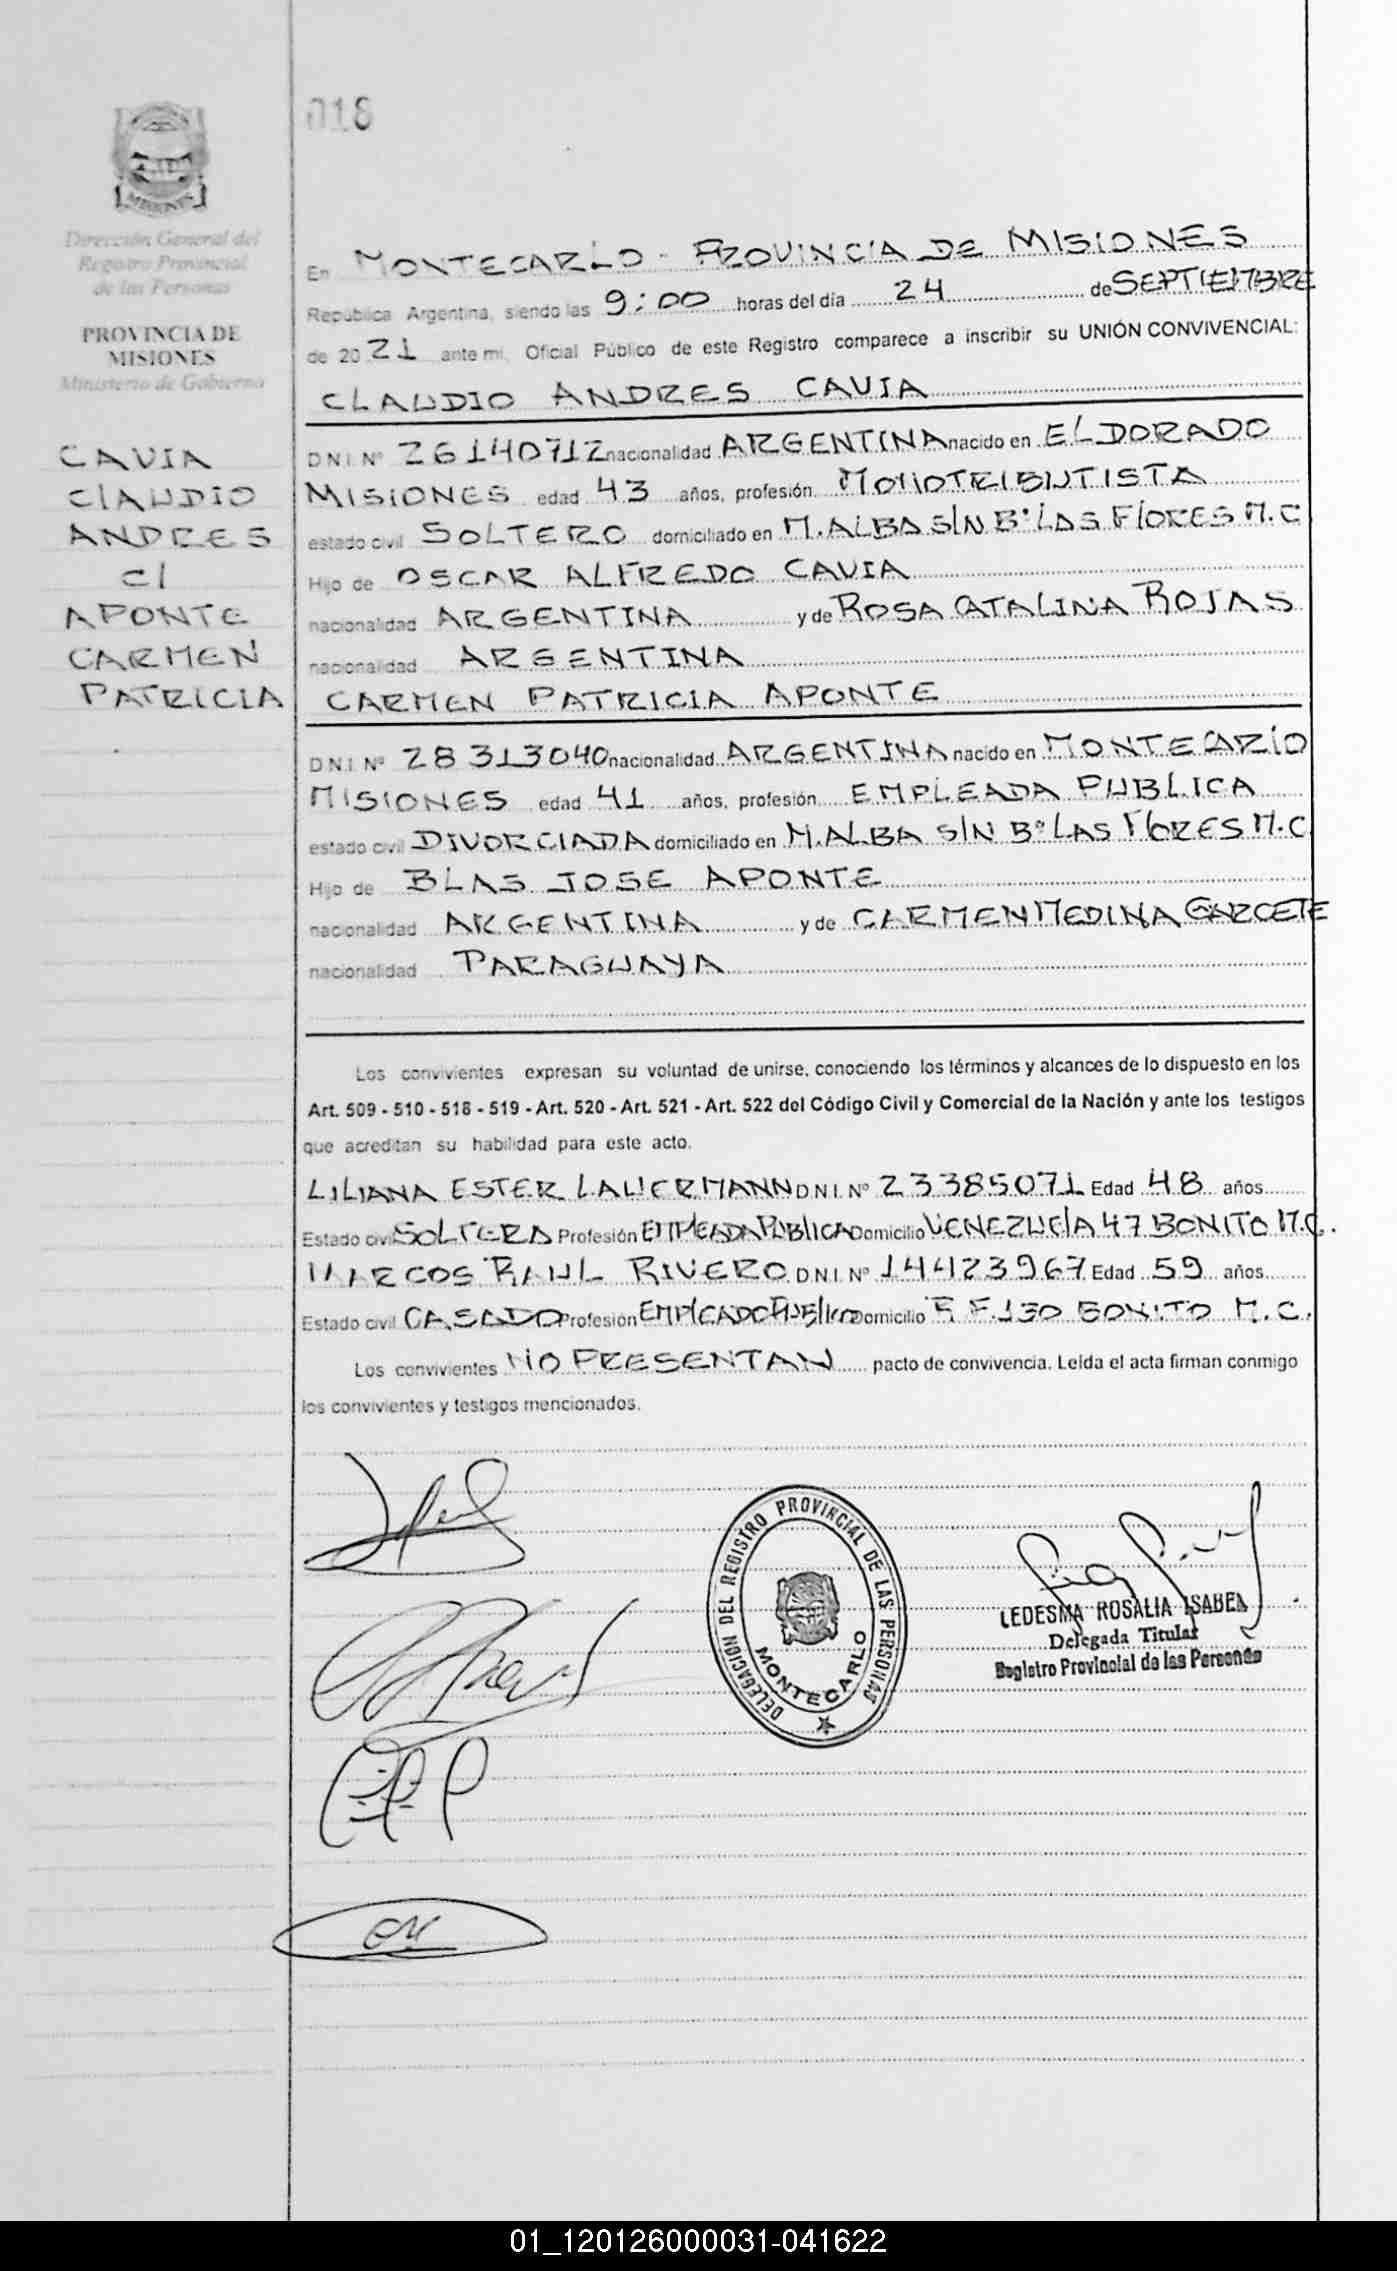 018
Dirección General del
Registro Provincial
de las Personas
PROVINCIA DE
MISIONES
Ministerio de Gobierno
CAVIA
CLAUDIO
ANDRES
C/
APONTE
CARMEN
PATRICIA
En MONTECARLO - PROVINCIA DE MISIONES
República Argentina, siendo las 9:00 horas del día 24 de SEPTIEMBRE
de 2021 ante mi, Oficial Público de este Registro comparece a inscribir su UNIÓN CONVIVENCIAL:
CLAUDIO ANDRES CAVIA
D.N.I. Nº 26140712 nacionalidad ARGENTINA nacido en ELDORADO
MISIONES edad 43 años, profesión MONOTRIBUTISTA
estado civil SOLTERO domiciliado en M. ALBA S/N Bº LAS FLORES M.C
Hijo de OSCAR ALFREDO CAVIA
nacionalidad ARGENTINA y de ROSA CATALINA ROJAS
nacionalidad ARGENTINA
CARMEN PATRICIA APONTE
D.N.I. Nº 28313040 nacionalidad ARGENTINA nacido en MONTECARLO
MISIONES edad 41 años, profesión EMPLEADA PUBLICA
estado civil DIVORCIADA domiciliado en M. ALBA S/N Bº LAS FLORES M.C
Hijo de BLAS JOSE APONTE
nacionalidad ARGENTINA y de CARMEN MEDINA GARCETE
nacionalidad PARAGUAYA
Los convivientes expresan su voluntad de unirse, conociendo los términos y alcances de lo dispuesto en los
Art. 509 - 510 - 518 - 519 - Art. 520 - Art. 521 - Art. 522 del Código Civil y Comercial de la Nación y ante los testigos
que acreditan su habilidad para este acto.
LILIANA ESTER LAUERMANN D.N.I. Nº 23385071 Edad 48 años
Estado civil SOLTERA Profesión EMPLEADA PUBLICA Domicilio VENEZUELA 47 BONITO M.C.
MARCOS RAUL RIVERO D.N.I. Nº 14423967 Edad 59 años
Estado civil CASADO Profesión EMPLEADO PUBLICO Domicilio F.130 BONITO M.C.
Los convivientes NO PRESENTAN pacto de convivencia. Leída el acta firman conmigo
los convivientes y testigos mencionados.
DELEGACION DEL REGISTRO PROVINCIAL DE LAS PERSONAS
MONTECARLO
LEDESMA ROSALIA ISABEL
Delegada Titular
Registro Provincial de las Personas
01_120126000031-041622